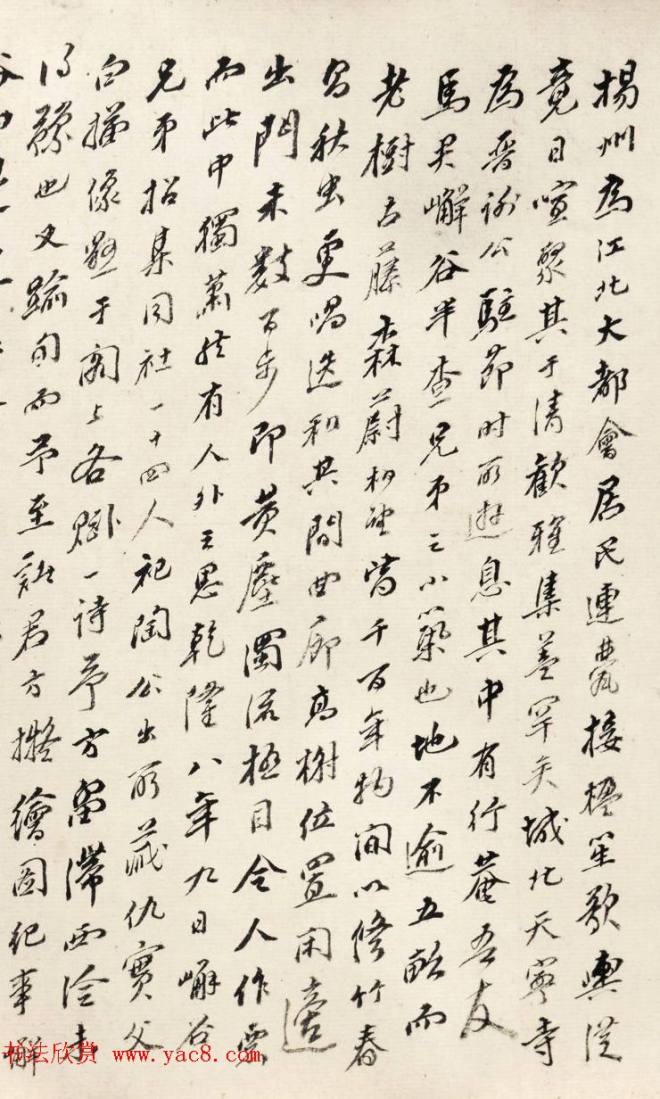 揚州為江北大都會居民連甍接楹笙歌輿從
竟日喧聚其于清歡雅集蓋罕矣城北天寧寺
為晉謝公駐節時所遊息其中有行菴吾友
馬君嶰谷半查兄弟之小築也地不逾五畝而
老樹古藤森蔚相望皆千百年物間以修竹春
鳥秋虫更唱迭和其間曲廊高榭位置閑適
出門未數百步即黃塵濁流極目令人作惡
而此中獨蕭然有人外之思乾隆八年九日嶰谷
兄弟招集同社一十四人祀陶公出所藏仇實父
白描像懸于閣上各賦一詩予方留滯西泠未
得豫也又踰旬而予至諸君方擬繪圖紀事嶰
书法欣赏 www.yac8.com